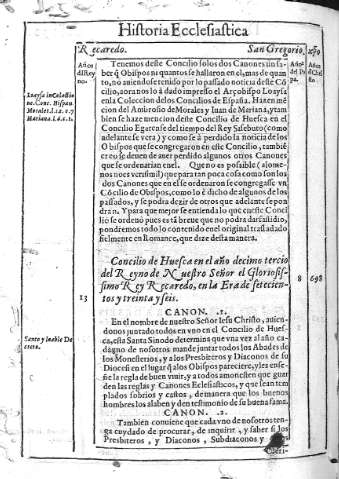 Historia Eclesiastica
Recaredo. San Gregorio. xſro
Años del Rey no.
Años del Pa pa.
Años de Chriſto
Tenemos deſte Concilio ſolos dos Canones ſin ſa-
ber q̃ Obiſpos ni quantos ſe hallaron en el, mas de quan-
to, no auiendoſe tenido por lo paſſado noticia deſte Cõ-
cilio, aora nos lo à dado impreſſo el Arçobiſpo Loayſa
en la Coleccion de los Concilios de Eſpaña. Hazen mẽ
cion del Ambroſio de Morales y Iuan de Mariana, y tam
bien ſe haze mencion deſte Concilio de Hueſca en el
Concilio Egarenſe del tiempo del Rey Siſebuto (como
adelante ſe verà) y como ſe à perdido la noticia de los
Obiſpos que ſe congregaron en eſte Concilio, tambiẽ
creo ſe deuen de auer perdido algunos otros Canones
que ſe ordenarian en el. Que no es poſible (alome-
nos no es veriſimil) que para tan poca coſa como ſon los
dos Canones que en el ſe ordenaron ſe congregaſſe vn
Cõcilio de Obiſpos, como lo è dacho de algunos de los
paſſados, y ſe podra dezir de otros que adelante ſe pon
dran. Y para que mejor ſe entienda lo que en eſte Conci
lio ſe ordenò pues eſtà breue que no podra dar faſtidio,
pondremos todo lo contenido en el original trasladado
fielmente en Romance, que dize deſta manera.
Loayſa in Colectio
ne. Conc. Hiſpan.
Morales. l. 12. c. 7
Mariana. l. 6. c. 1.
Concilio de Hueſca en el año decimo tercio
del Reyno de Nueſtro Señor el Glorioſiſ-
ſimo Rey Recaredo, en la Era de ſetecien-
tos y treinta y ſeis.
13
8
698
CANON. .1.
En el nombre de nueſtro Señor Ieſu Chriſto, auien-
donos juntado todos en vno en el Concilio de Hueſ-
ca, eſta Santa Sinodo determina que vna vez al año ca-
da vno de noſotros mande juntar todos los Abades de
los Moneſterios, y a los Presbiteros y Diaconos de ſu
Dioceſi en el lugar q̃ a los Obiſpos pareciere, y les enſe-
ñe la regla de buen viuir, y a todos amoneſten que guar
den las reglas y Canones Ecleſiaſticos, y que ſean tem
plados ſobrios y caſtos, de manera que los buenos
hombres los alaben y den teſtimonio de ſu buena fama.
Santo y loable De
creto.
CANON. .2.
Tambien conuiene que cada vno de noſotros ten-
ga cuydado de procurar, de inquirir, y ſaber ſi los
Presbiteros, y Diaconos, Subdiaconos y